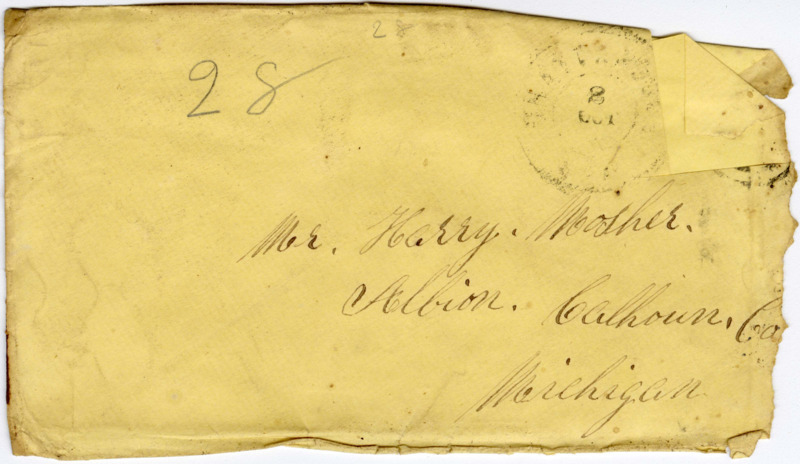 28
28
8
OCT
Mr. Harry. Mosher.
Albion. Calhoun. Co
Michigan